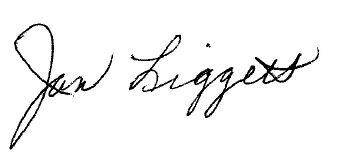 Jan Liggett